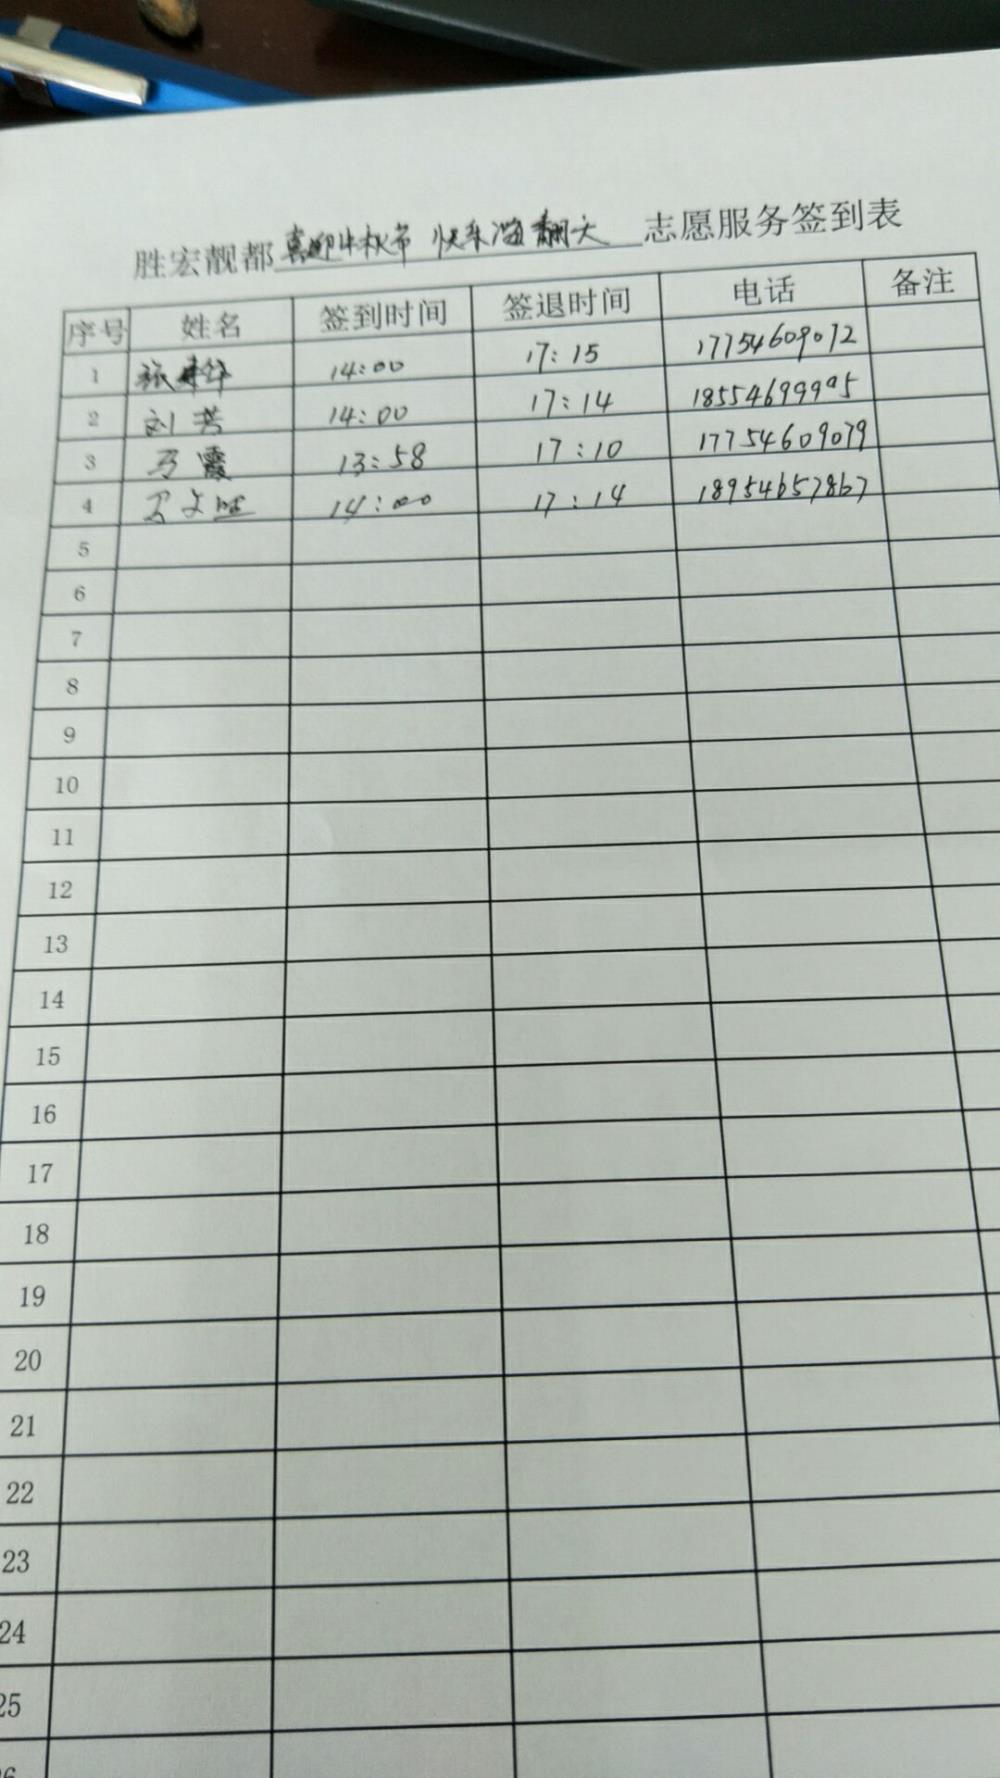 胜宏靓都 喜迎中秋节 快乐嗨翻天 志愿服务签到表
序号 姓名 签到时间 签退时间 电话 备注
1 张 14:00 17:15 17754609072
2 刘芳 14:00 17:14 18554699995
3 马霞 13:58 17:10 17754609079
4 文 14:00 17:14 18954657867
5
6
7
8
9
10
11
12
13
14
15
16
17
18
19
20
21
22
23
24
25